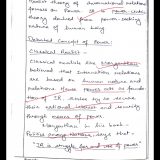 Realist theory of international relations
focuses on Power. It is power which
theory studied from power-seeking
nature of human being
Detailed Concept of Power:
Classical Realist:
Classical realists like Morgenthau
believed that International relations
are based on human nature and
relations. Hence Power acts as foun-
dation of IR. States try to secure
their national interest and security
through means of power.
Morgenthau in his book
Politics among Nations, says that-
IR is struggle for and use of power